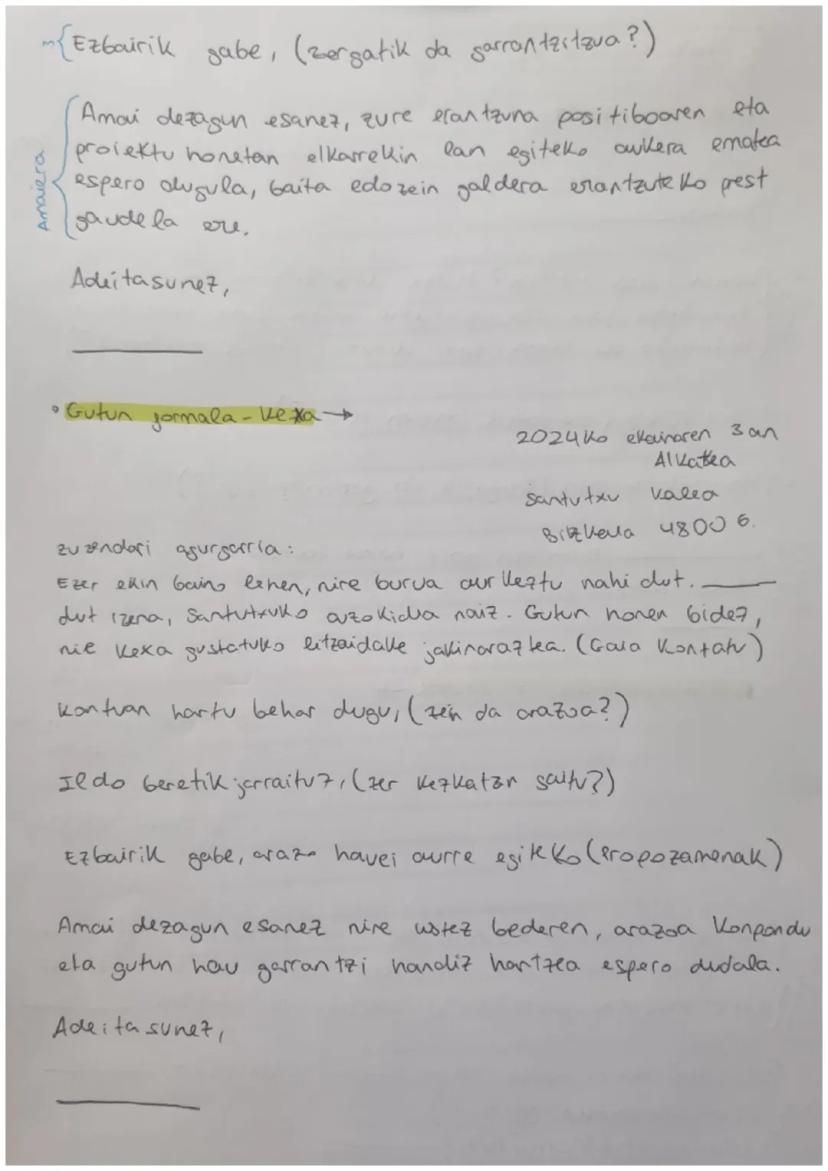 m{Ezbairik gabe, (zergatik da garrantzitzua?)
Amai dezagun esanez, zure erantzuna positiboaren eta
proiektu honetan elkarrekin lan egiteko aukera ematea
espero dugula, baita edozein galdera erantzuteko prest
gaudela ere.
Amaiera
Adeitasunez,
• Gutun formala - Kexa →
2024ko ekainaren 3an
Alkatea
Santutxu kalea
Bizkaia 48006.
zuzendari agurgarria:
Ezer ekin baino lehen, nire burua aurkeztu nahi dut. ____
dut izena, Santutxuko auzokidea naiz. Gutun honen bidez,
nire kexa gustatuko litzaidake jakinaraztea. (Gaia Kontatu)
Kontuan hartu behar dugu, (zein da arazoa?)
Ildo beretik jarraituz, (zer kezkatzen zaitu?)
Ezbairik gabe, arazo hauei aurre egiteko (Propozamenak)
Amai dezagun esanez nire ustez bederen, arazoa Konpondu
eta gutun hau garrantzi handiz hartzea espero dudala.
Adeitasunez,